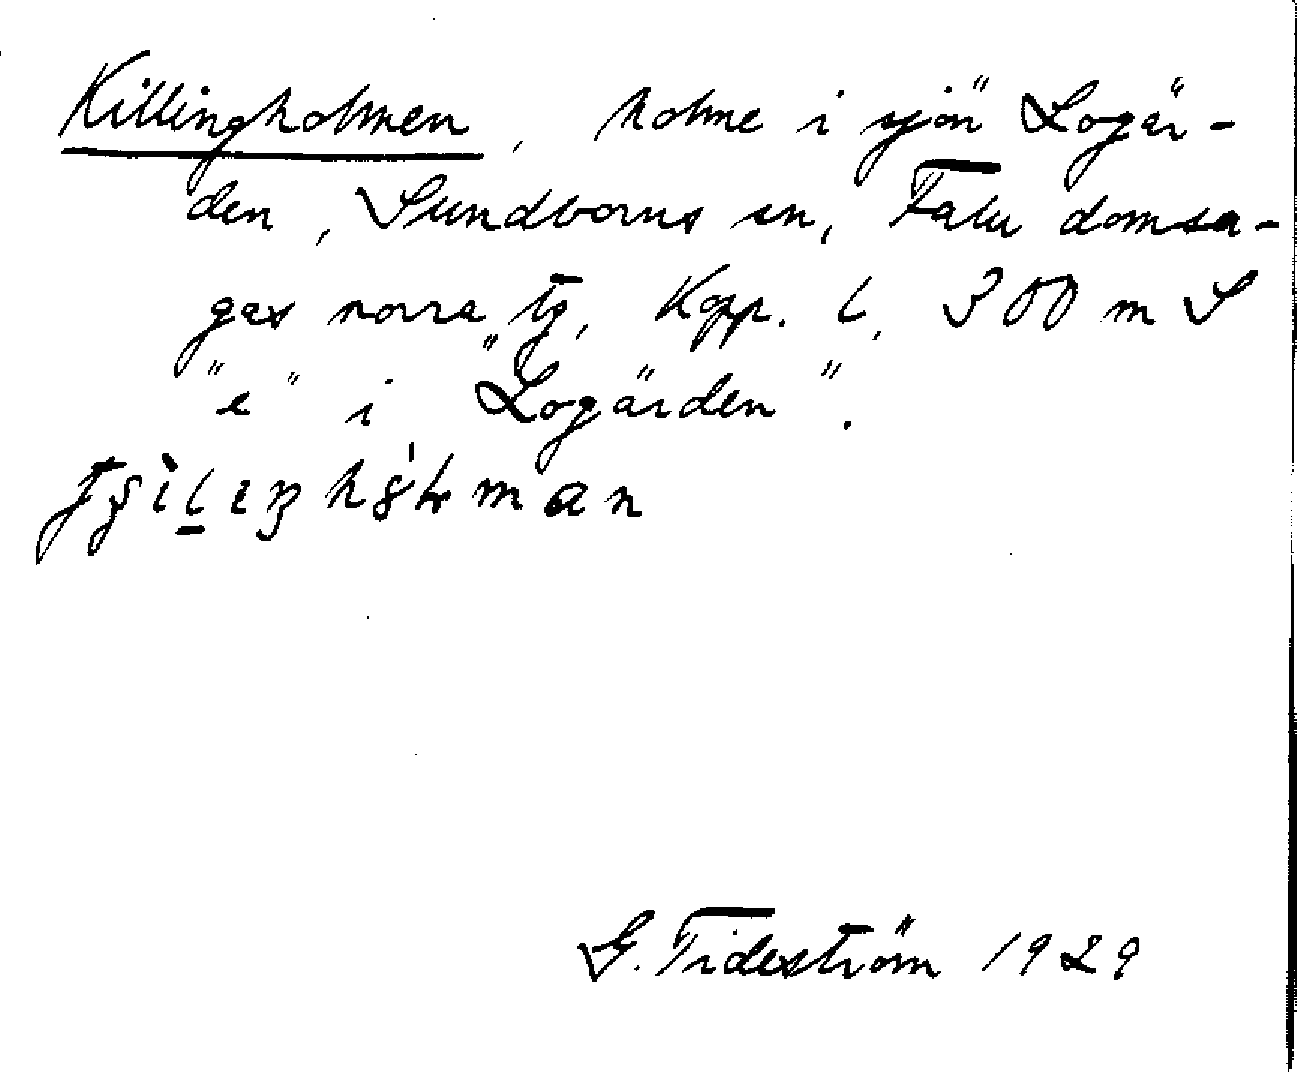 Killingholmen, holme i sjön Logär-
den, Sundborns sn, Falu domsa-
gas norra tg, Kopp. l. 300 m S
"e" i "Logärden".
G. Tideström 1929